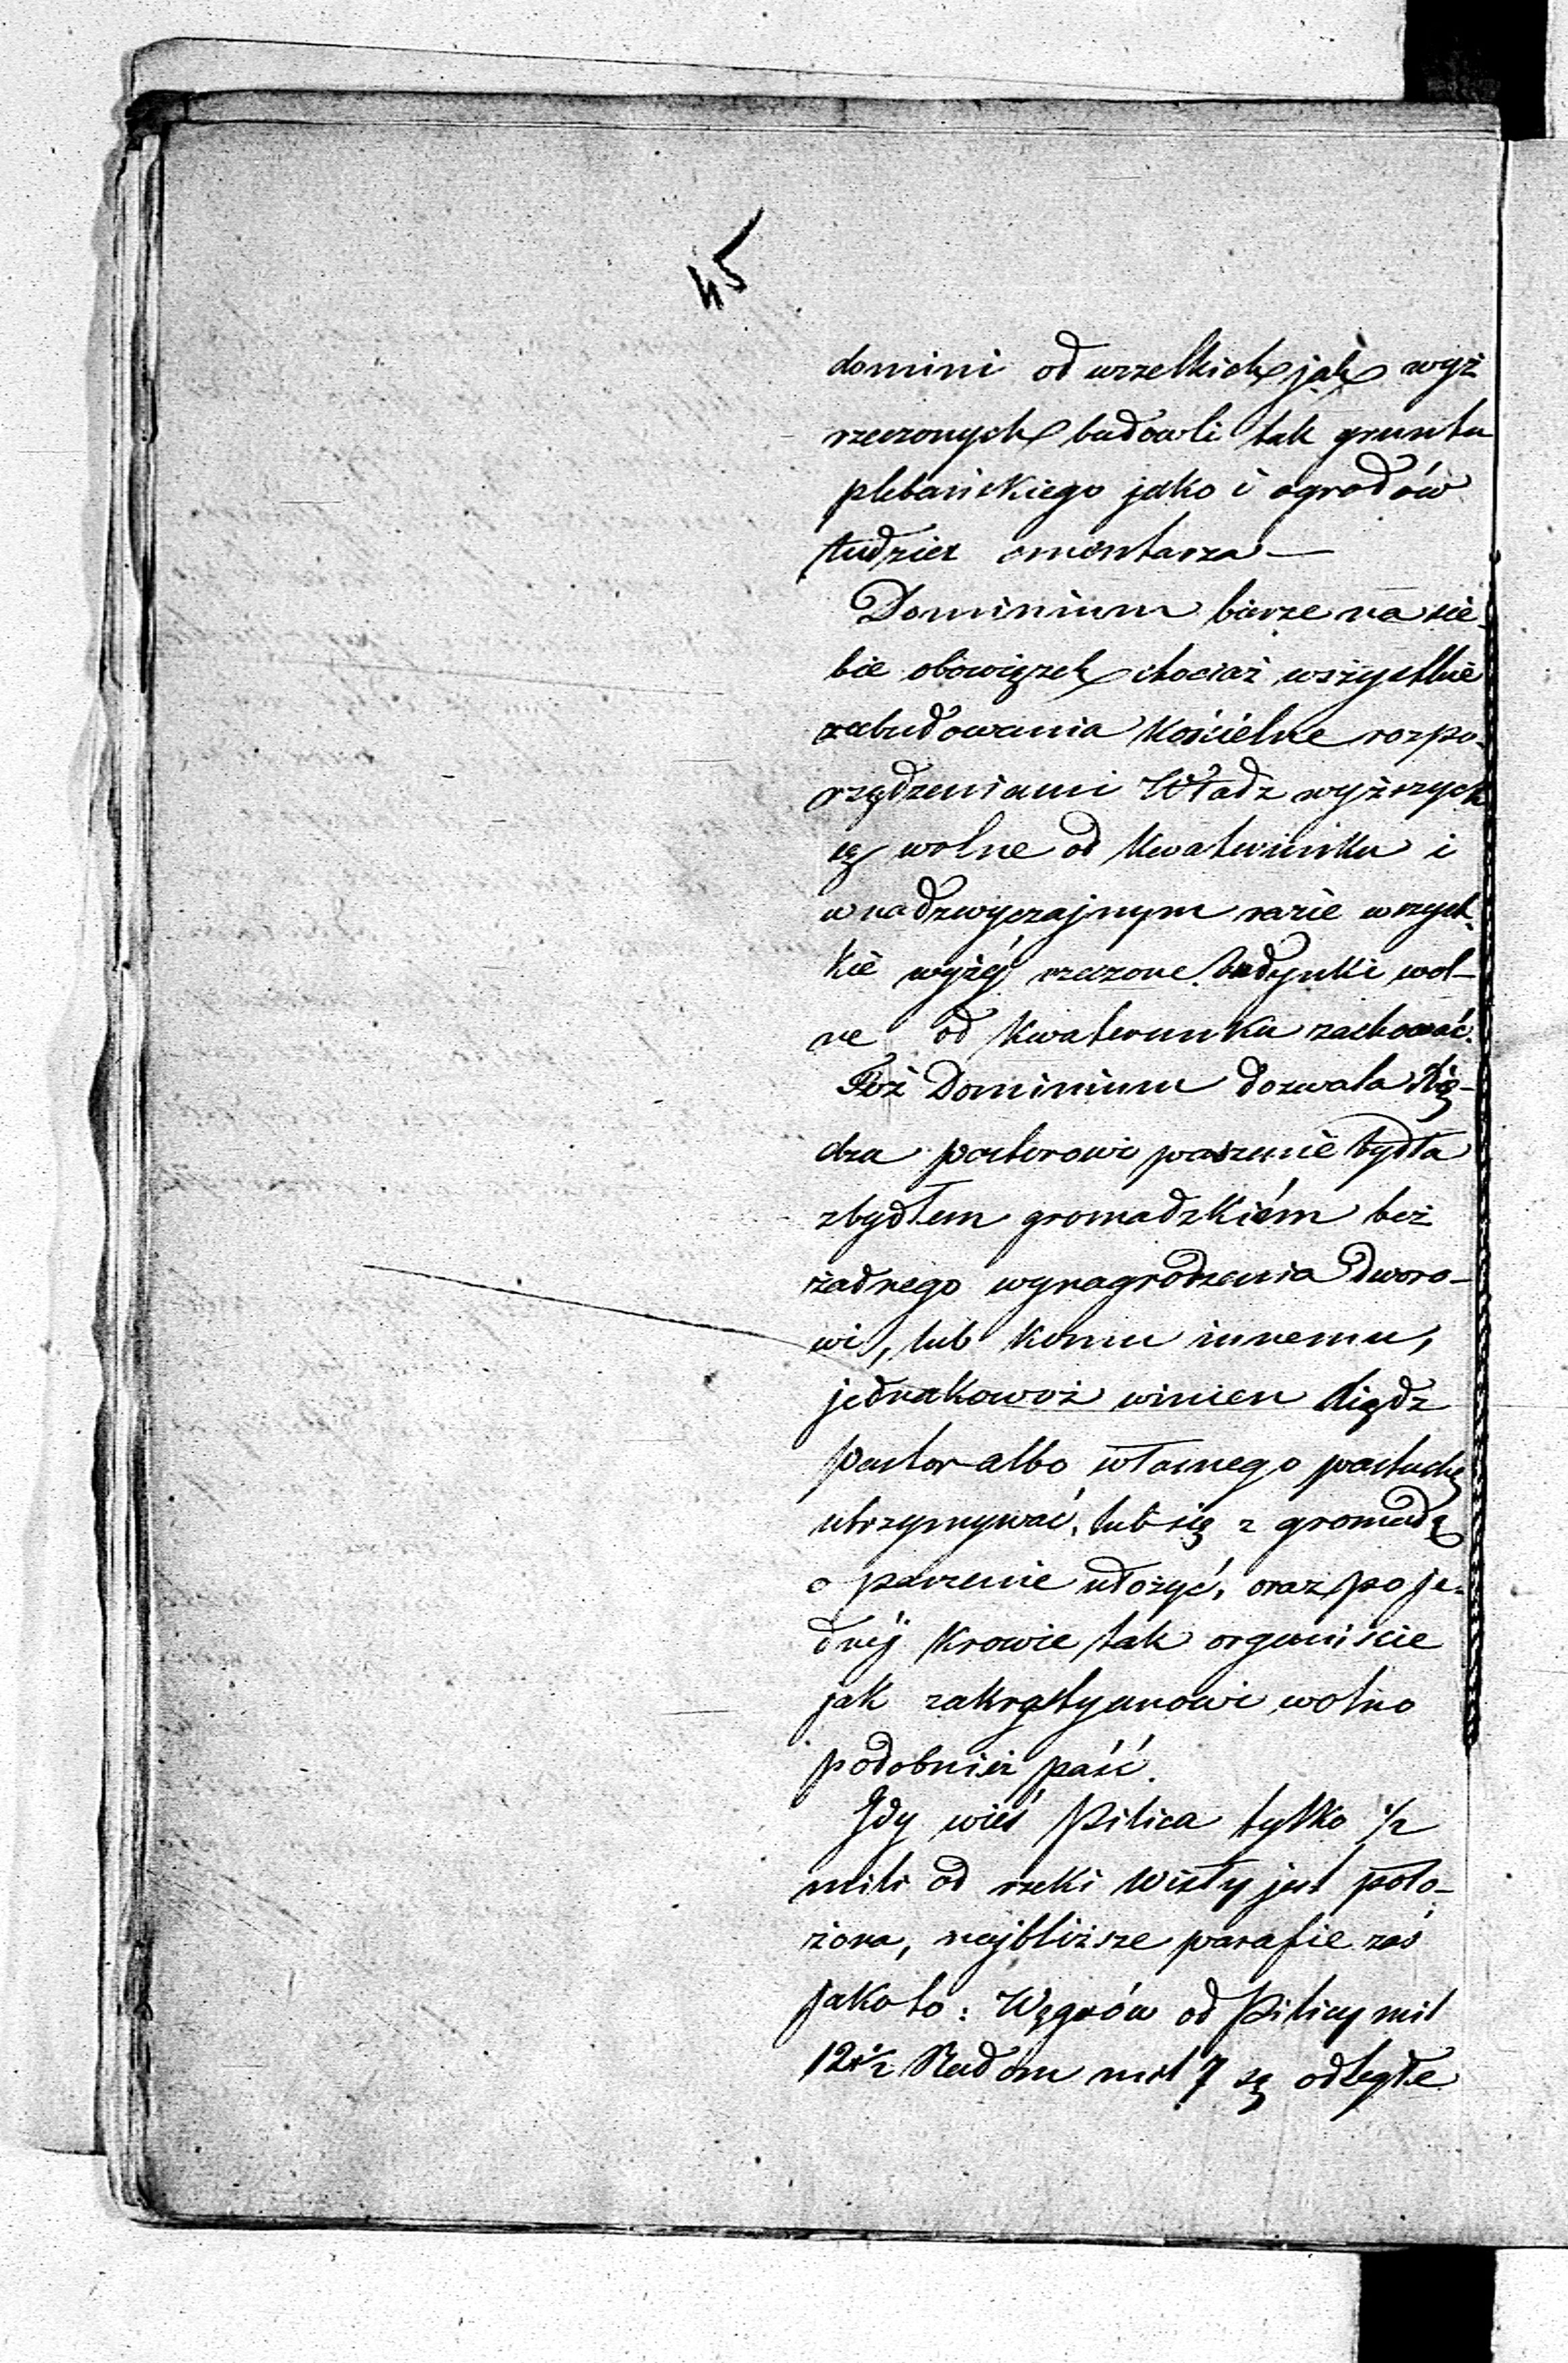 45
domini od wszelkich jak wyż
rzeczonych budowli tak gruntu
plebańskiego jako i ogrodów
tudzież cmentarza —
Dominium bierze na sie-
bie obowiązek chociaż wszystkie
zabudowania kościelne rozpo-
rządzeniami Władz wyższych
są wolne od kwaterunku i
w nadzwyczajnym razie wszyst-
kie wyżéj rzeczone budynki wol-
ne od kwaterunku zachować.
Toż Dominium dozwala Xię-
dzu pastorowi paszenie bydła
z bydłem gromadzkiém bez
żadnego wynagrodzenia Dworo-
wi, lub komu innemu,
jednakowoż winien Xiądz
Pastor albo własnego pastucha
utrzymywać, lub się z gromadą
o paszenie ułożyć, oraz po je-
dnéj krowie tak organiście
jak zakrystyanowi wolno
podobnież paść.
Gdy wieś Pilica tylko 1/2
mili od rzeki Wisły jest poło-
żona, najbliższe parafie zaś
jako to: Węgrów od Pilicy mil
12 1/2 Radom mil 7 są odległe